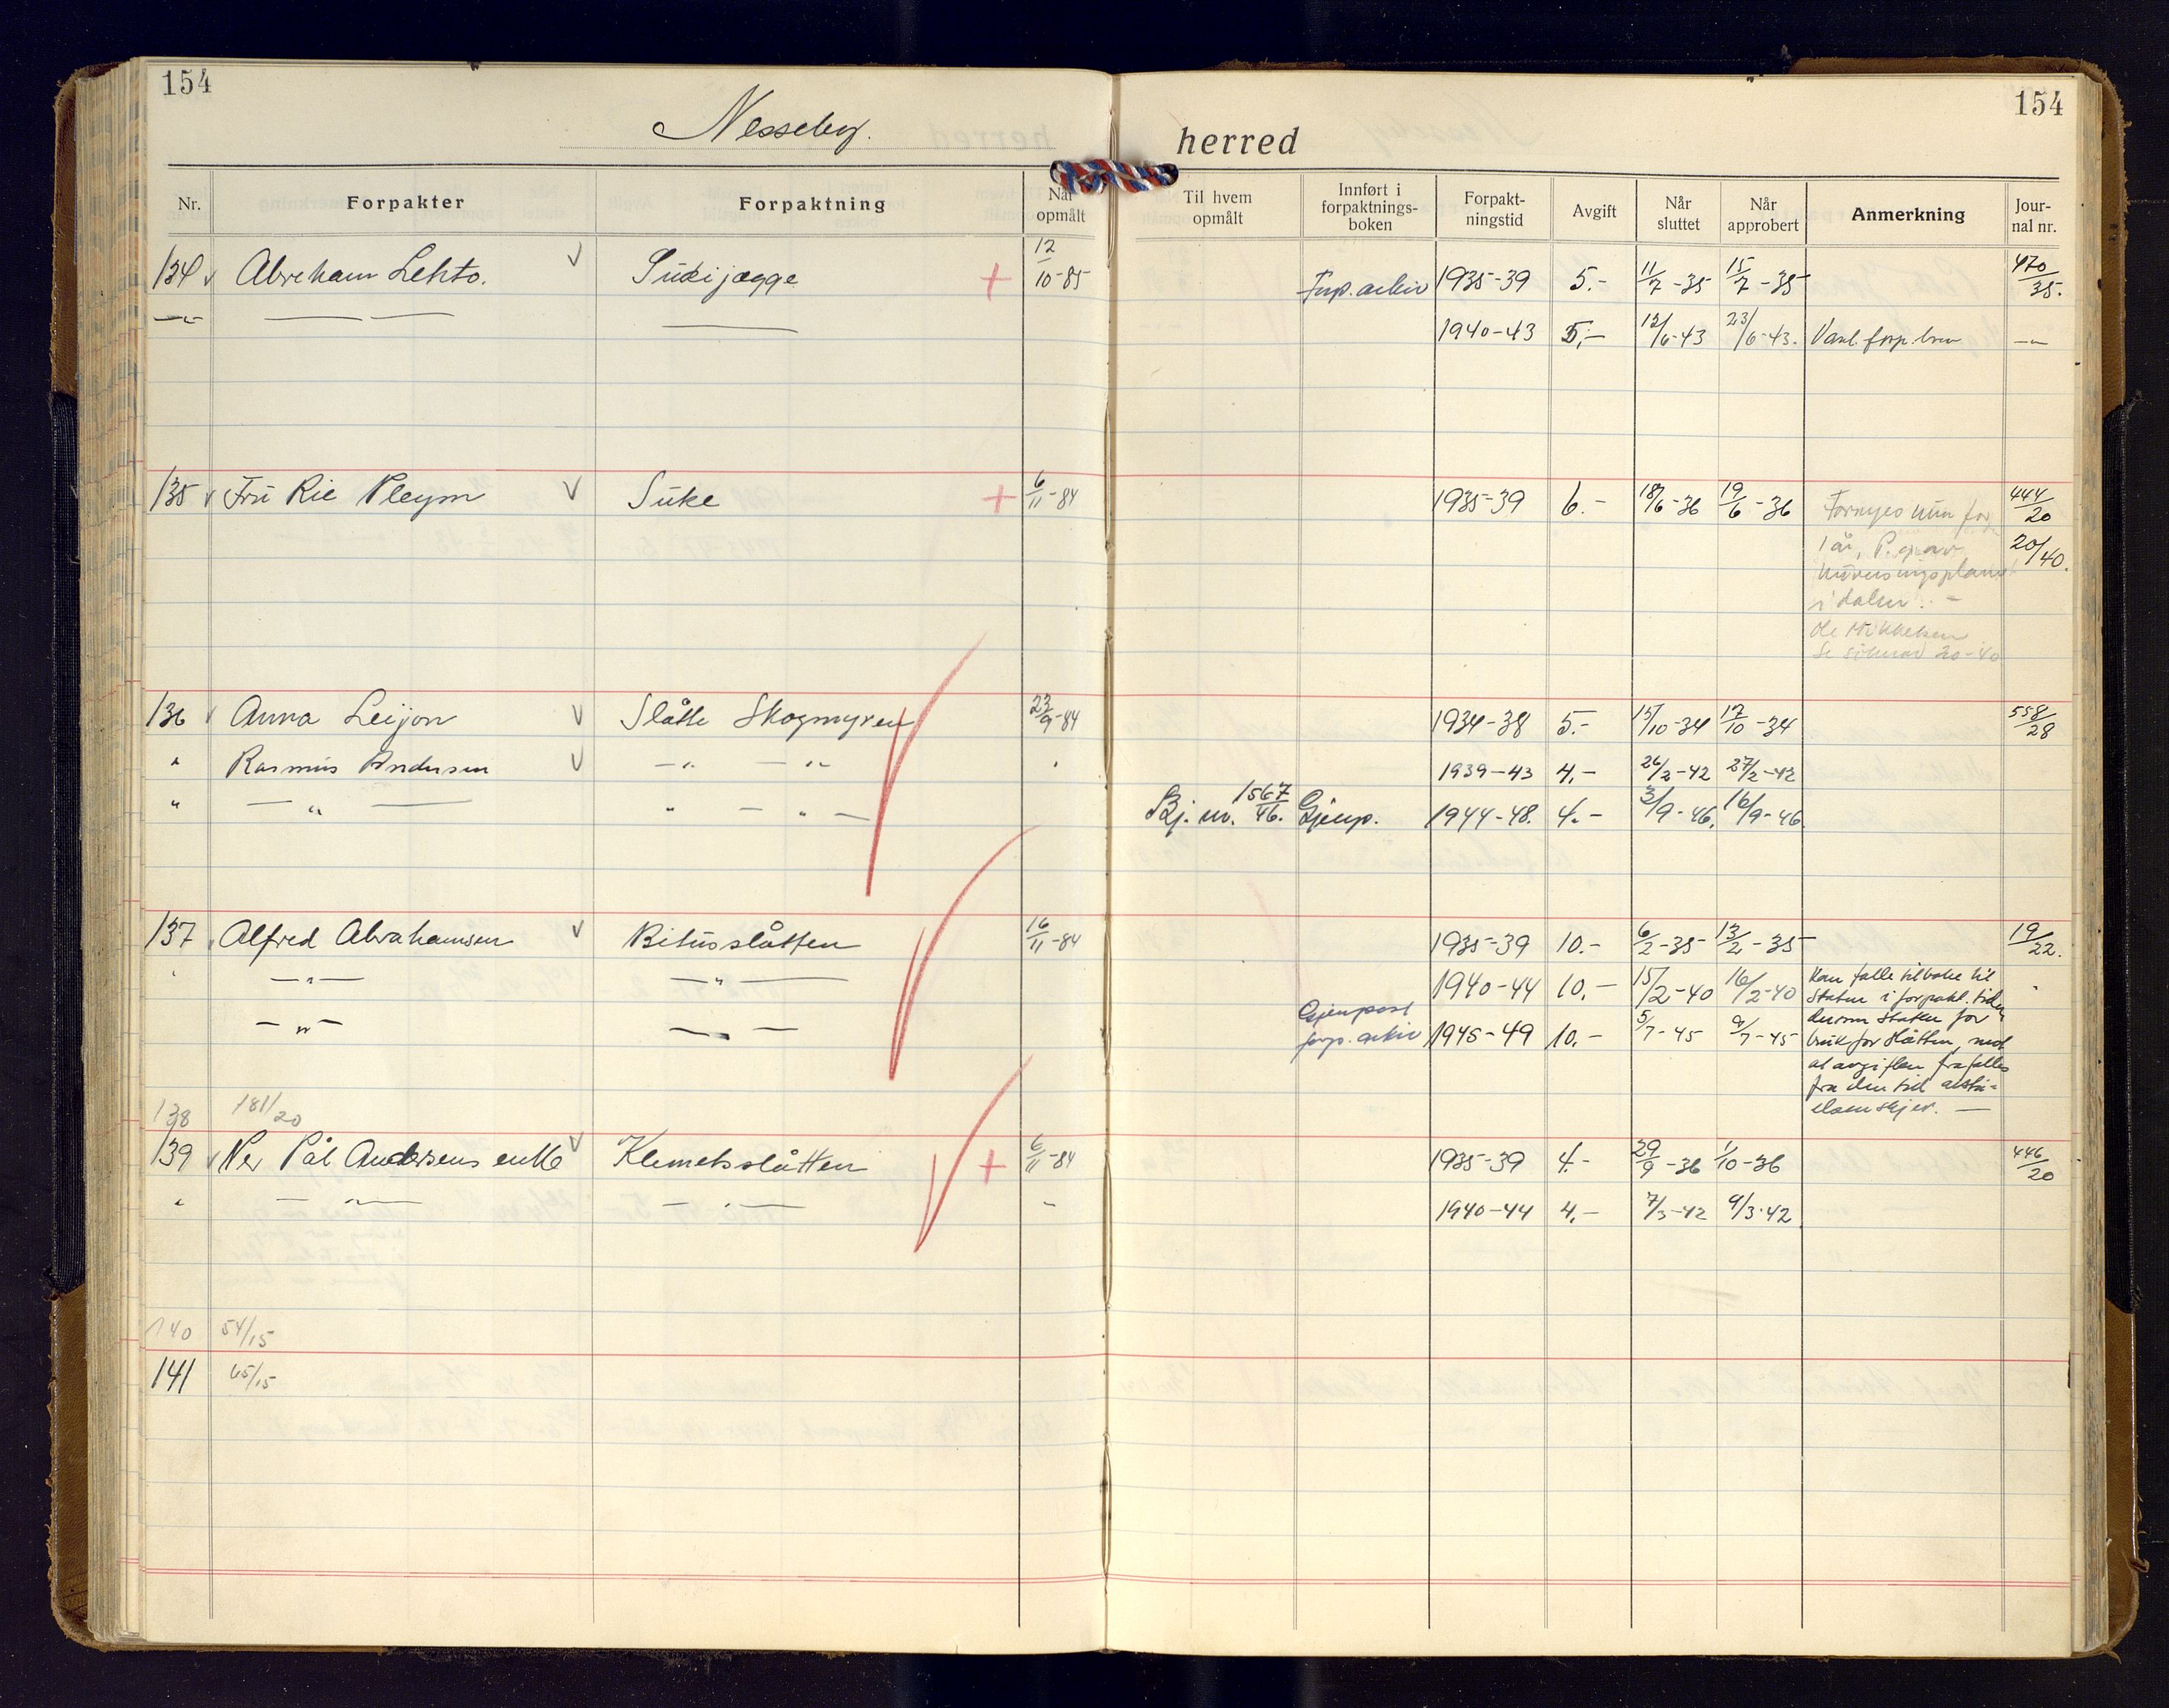 154
154
Nesseby.
herred
Nr. Forpakter Forpaktning Når opmålt Til hvem opmålt Innført i forpaktnings-boken Forpakt-ningstid Avgift Når sluttet Når approbert Anmerkning Jour-nal nr.
134 v Abraham Lehto. v Sukijægge + 12/10-85 Forp. arkiv 1935-39 5.- 11/7-35 15/7-35 470/35.
—"— —— —— —— 1940-43 5,- 12/6-43 23/6-43. Vanl. forp. brev —"—
135 v Fru Rie Pleym v Suke + 6/11-84 1935-39 6.- 18/6-36 19/6-36 Fornyes kun for 444/20
1 år, P. 20/40.
i dalen. -
Ole Mikkelsen
Se 20-40
136 v Anna Leijon v Slåtte Skogmyren 23/9-84 1934-38 5.- 15/10-34 17/10-34 558/28
" Rasmus Andersen v —"— —"— " 1939-43 4,- 26/2-42 27/2-42
" — " — " — " — Bj. nr. 1567/46. Gjenp. 1944-48. 4.- 3/9-46. 16/9-46
137 v Alfred Abrahamsen v Bitusslåtten 16/11-84 1935-39 10.- 6/2-35 13/2-35 19/22.
" —"— —"— 1940-44 10,- 15/2-40 16/2-40 Kan falle tilbake til "
Staten i forpakt. tiden
—"— —"— Gjenpart forp. arkiv 1945-49 10.- 5/7-45 9/7-45 dersom Staten får
bruk for Slåtten, mot
at avgiften frafalles
fra den tid avstå-
elsen skjer. —
138 181/20
139 v Per Pål Andersens enke v Klemetsslåtten + 6/11-84 1935-39 4.- 29/9-36 1/10-36 446/20
" — " — — " — - 1940-44 4,- 7/3-42 9/3-42
140 54/15
141 65/15